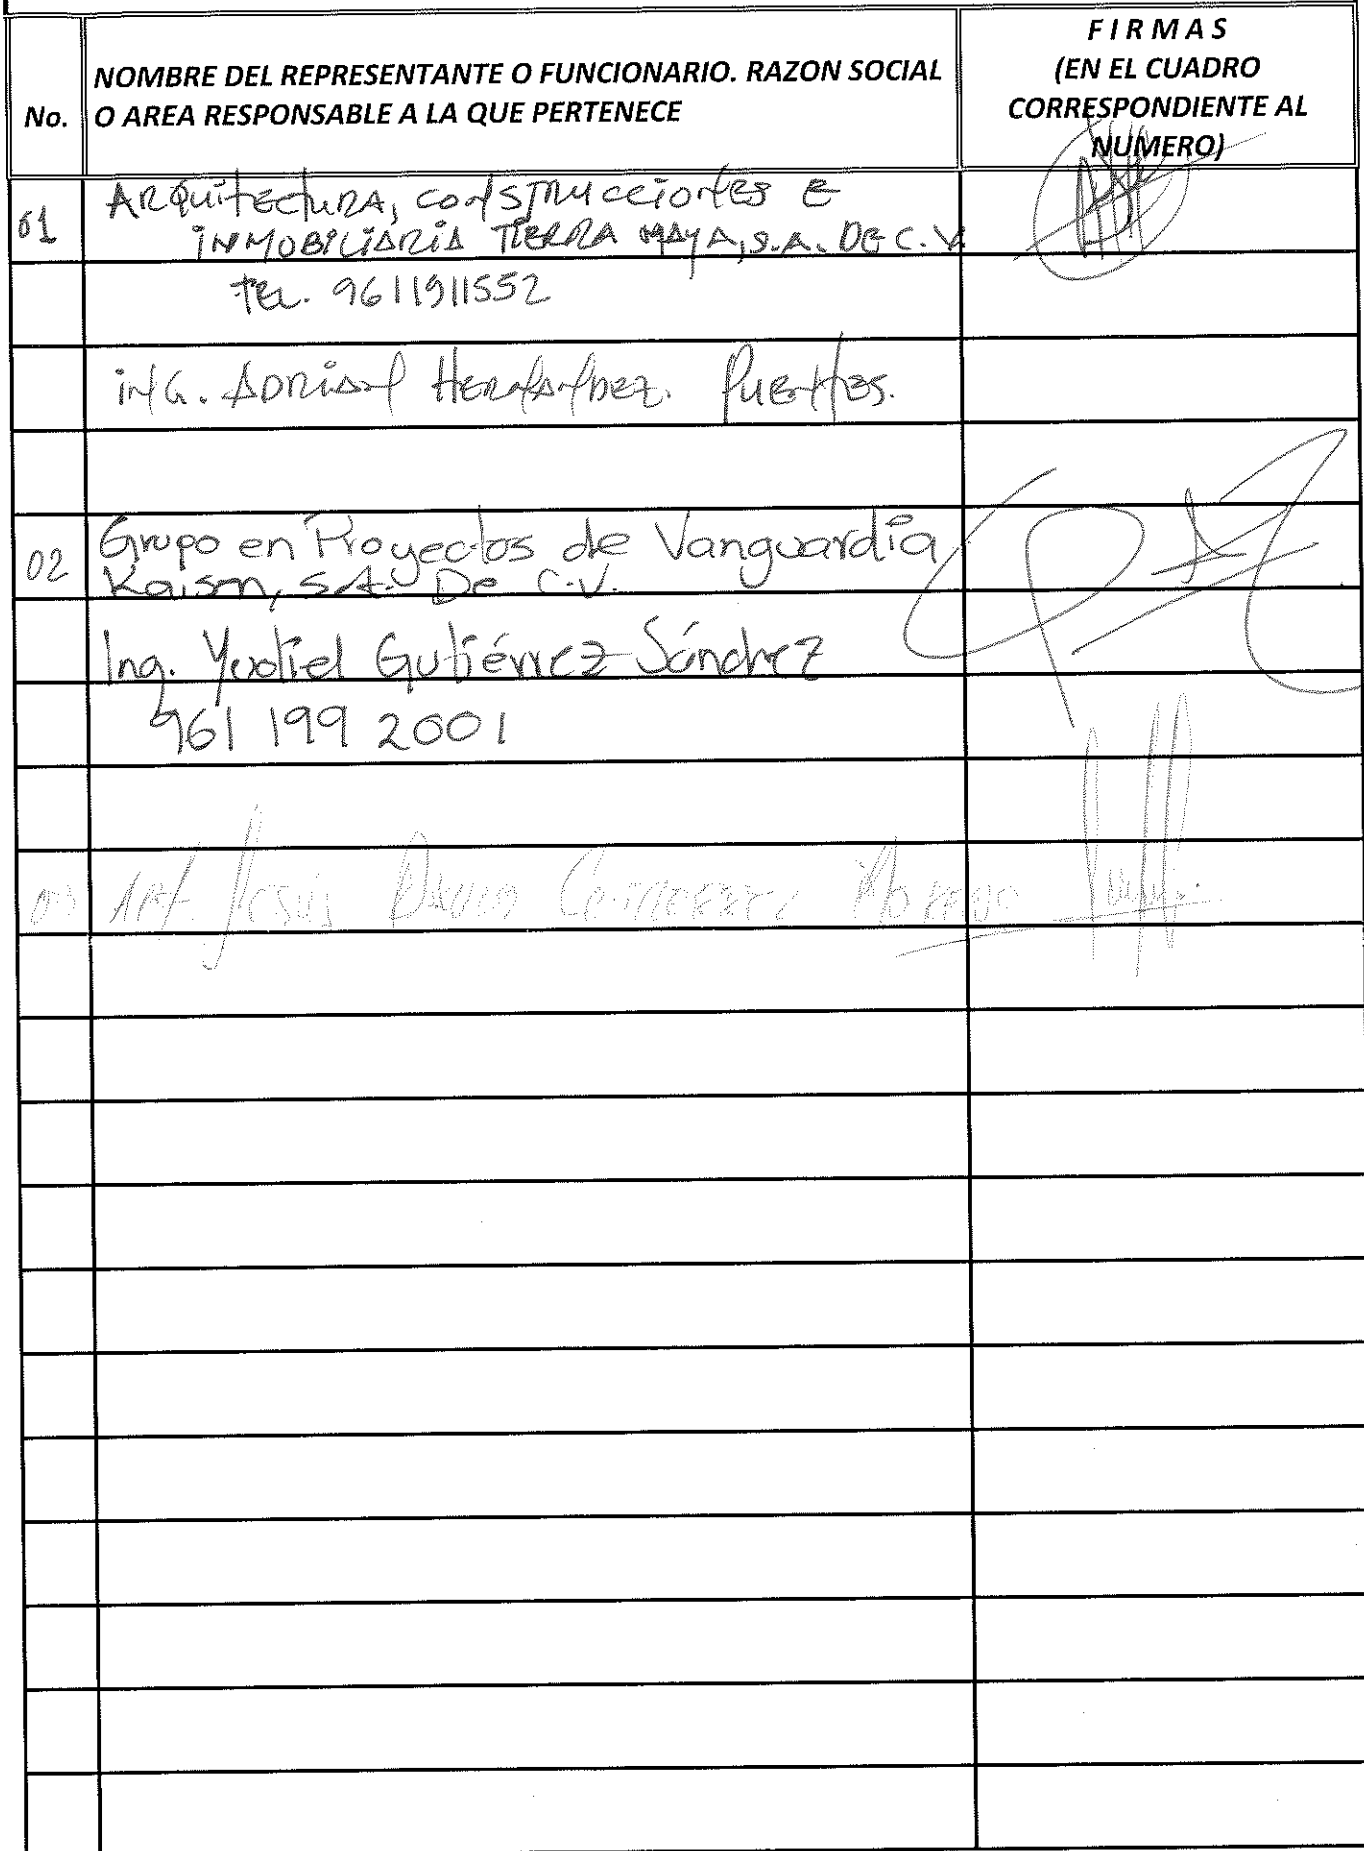 No.
NOMBRE DEL REPRESENTANTE O FUNCIONARIO. RAZON SOCIAL
O AREA RESPONSABLE A LA QUE PERTENECE
F I R M A S
(EN EL CUADRO
CORRESPONDIENTE AL
NUMERO)
01
ARQuitEctuRA, coNSTRucciones E
iNMOBiLiARiA TiERRA MAYA, S.A. DE C.V.
TEL. 9611911552
iNG. ADRiAN HERNANDEZ. PuENtES.
02
Grupo en Proyectos de Vanguardia
Kaisen, S.A. De C.V.
Ing. Yudiel Gutiérrez Sánchez
961 199 2001
03 Jesús Moreno